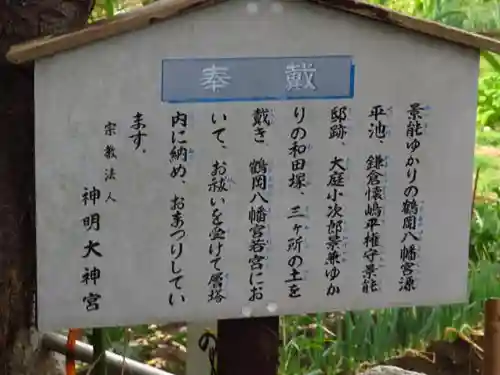 奉戴
景能ゆかりの鶴岡八幡宮源
平池、鎌倉懐嶋平権守景能
邸跡、大庭小次郎景兼ゆか
りの和田塚、三ヶ所の土を
戴き、鶴岡八幡宮若宮にお
いて、お祓いを受けて層塔
内に納め、おまつりしてい
ます。
宗教法人
神明大神宮
の